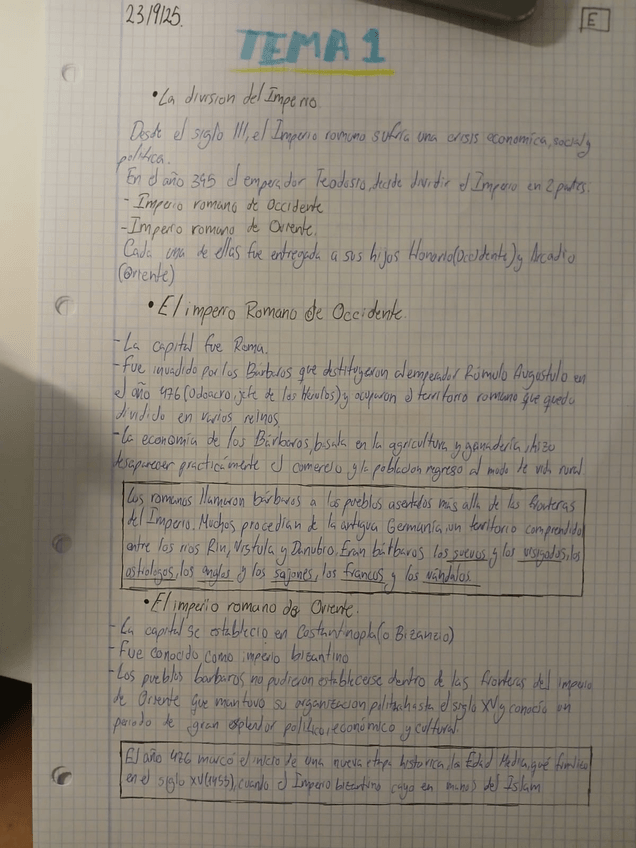 23/9/25.
E
TEMA 1
• La division del Imperio.
Desde el siglo III, el Imperio romano sufria una crisis economica, social y
politica.
En el año 395 el emperador Teodosio, decide dividir el Imperio en 2 partes:
- Imperio romano de Occidente
- Imperio romano de Oriente.
Cada una de ellas fue entregada a sus hijos Honorio (Occidente) y Arcadio
(Oriente)
• El imperio Romano de Occidente.
- La capital fue Roma.
- Fue invadido por los Bárbaros que destituyeron al emperador Rómulo Augustulo en
el año 476 (Odoacro, jefe de los Herulos) y ocuparon el territorio romano que quedo
dividido en varios reinos
- La economía de los Bárbaros, basada en la agricultura y ganadería, hizo
desaparecer practicámente el comercio y la poblacion regreso al modo de vida rural.
Los romanos llamaron bárbaros a los pueblos asentados más alla de las fronteras
del Imperio. Muchos procedian de la antigua Germanía, un territorio comprendido
entre los rios Rin, Vistula y Danubio. Eran bárbaros los suevos y los visigodos, los
ostrogodos, los anglos y los sajones, los francos y los vándalos.
• El imperio romano de Oriente.
- La capital se establecio en Costantinopla (o Bizancio)
- Fue conocido como imperio bizantino
- Los pueblos barbaros no pudieron establecerse dentro de las fronteras del imperio
de Oriente que mantuvo su organizacion politica hasta el siglo XV y conocio un
periodo de gran esplendor politico, económico y cultural.
El año 476 marcó el inicio de una nueva etapa historica, la Edad Media, qué finalizo
en el siglo XV (1453), cuando el Imperio bizantino cayo en manos del Islam